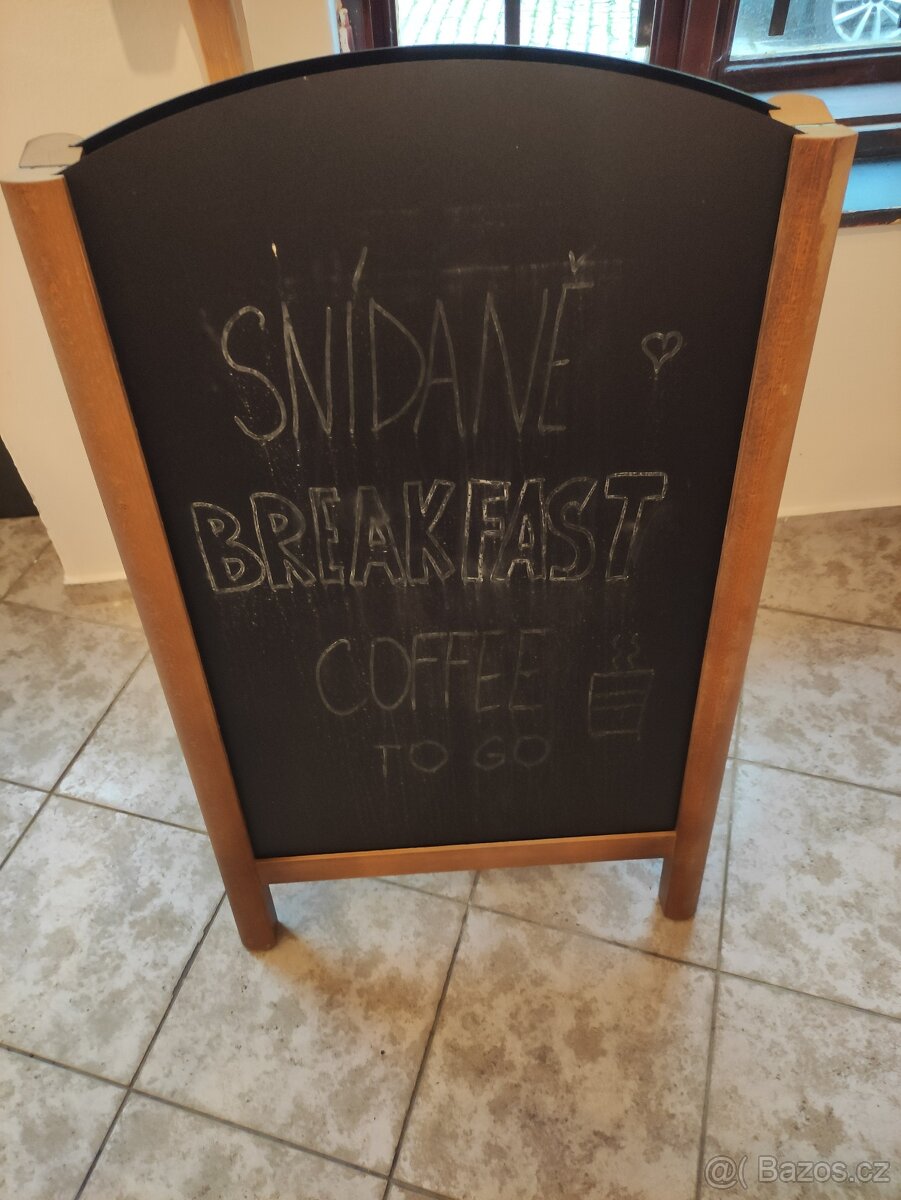 SNÍDANĚ
BREAKFAST
COFFEE
TO GO
@( Bazos.cz